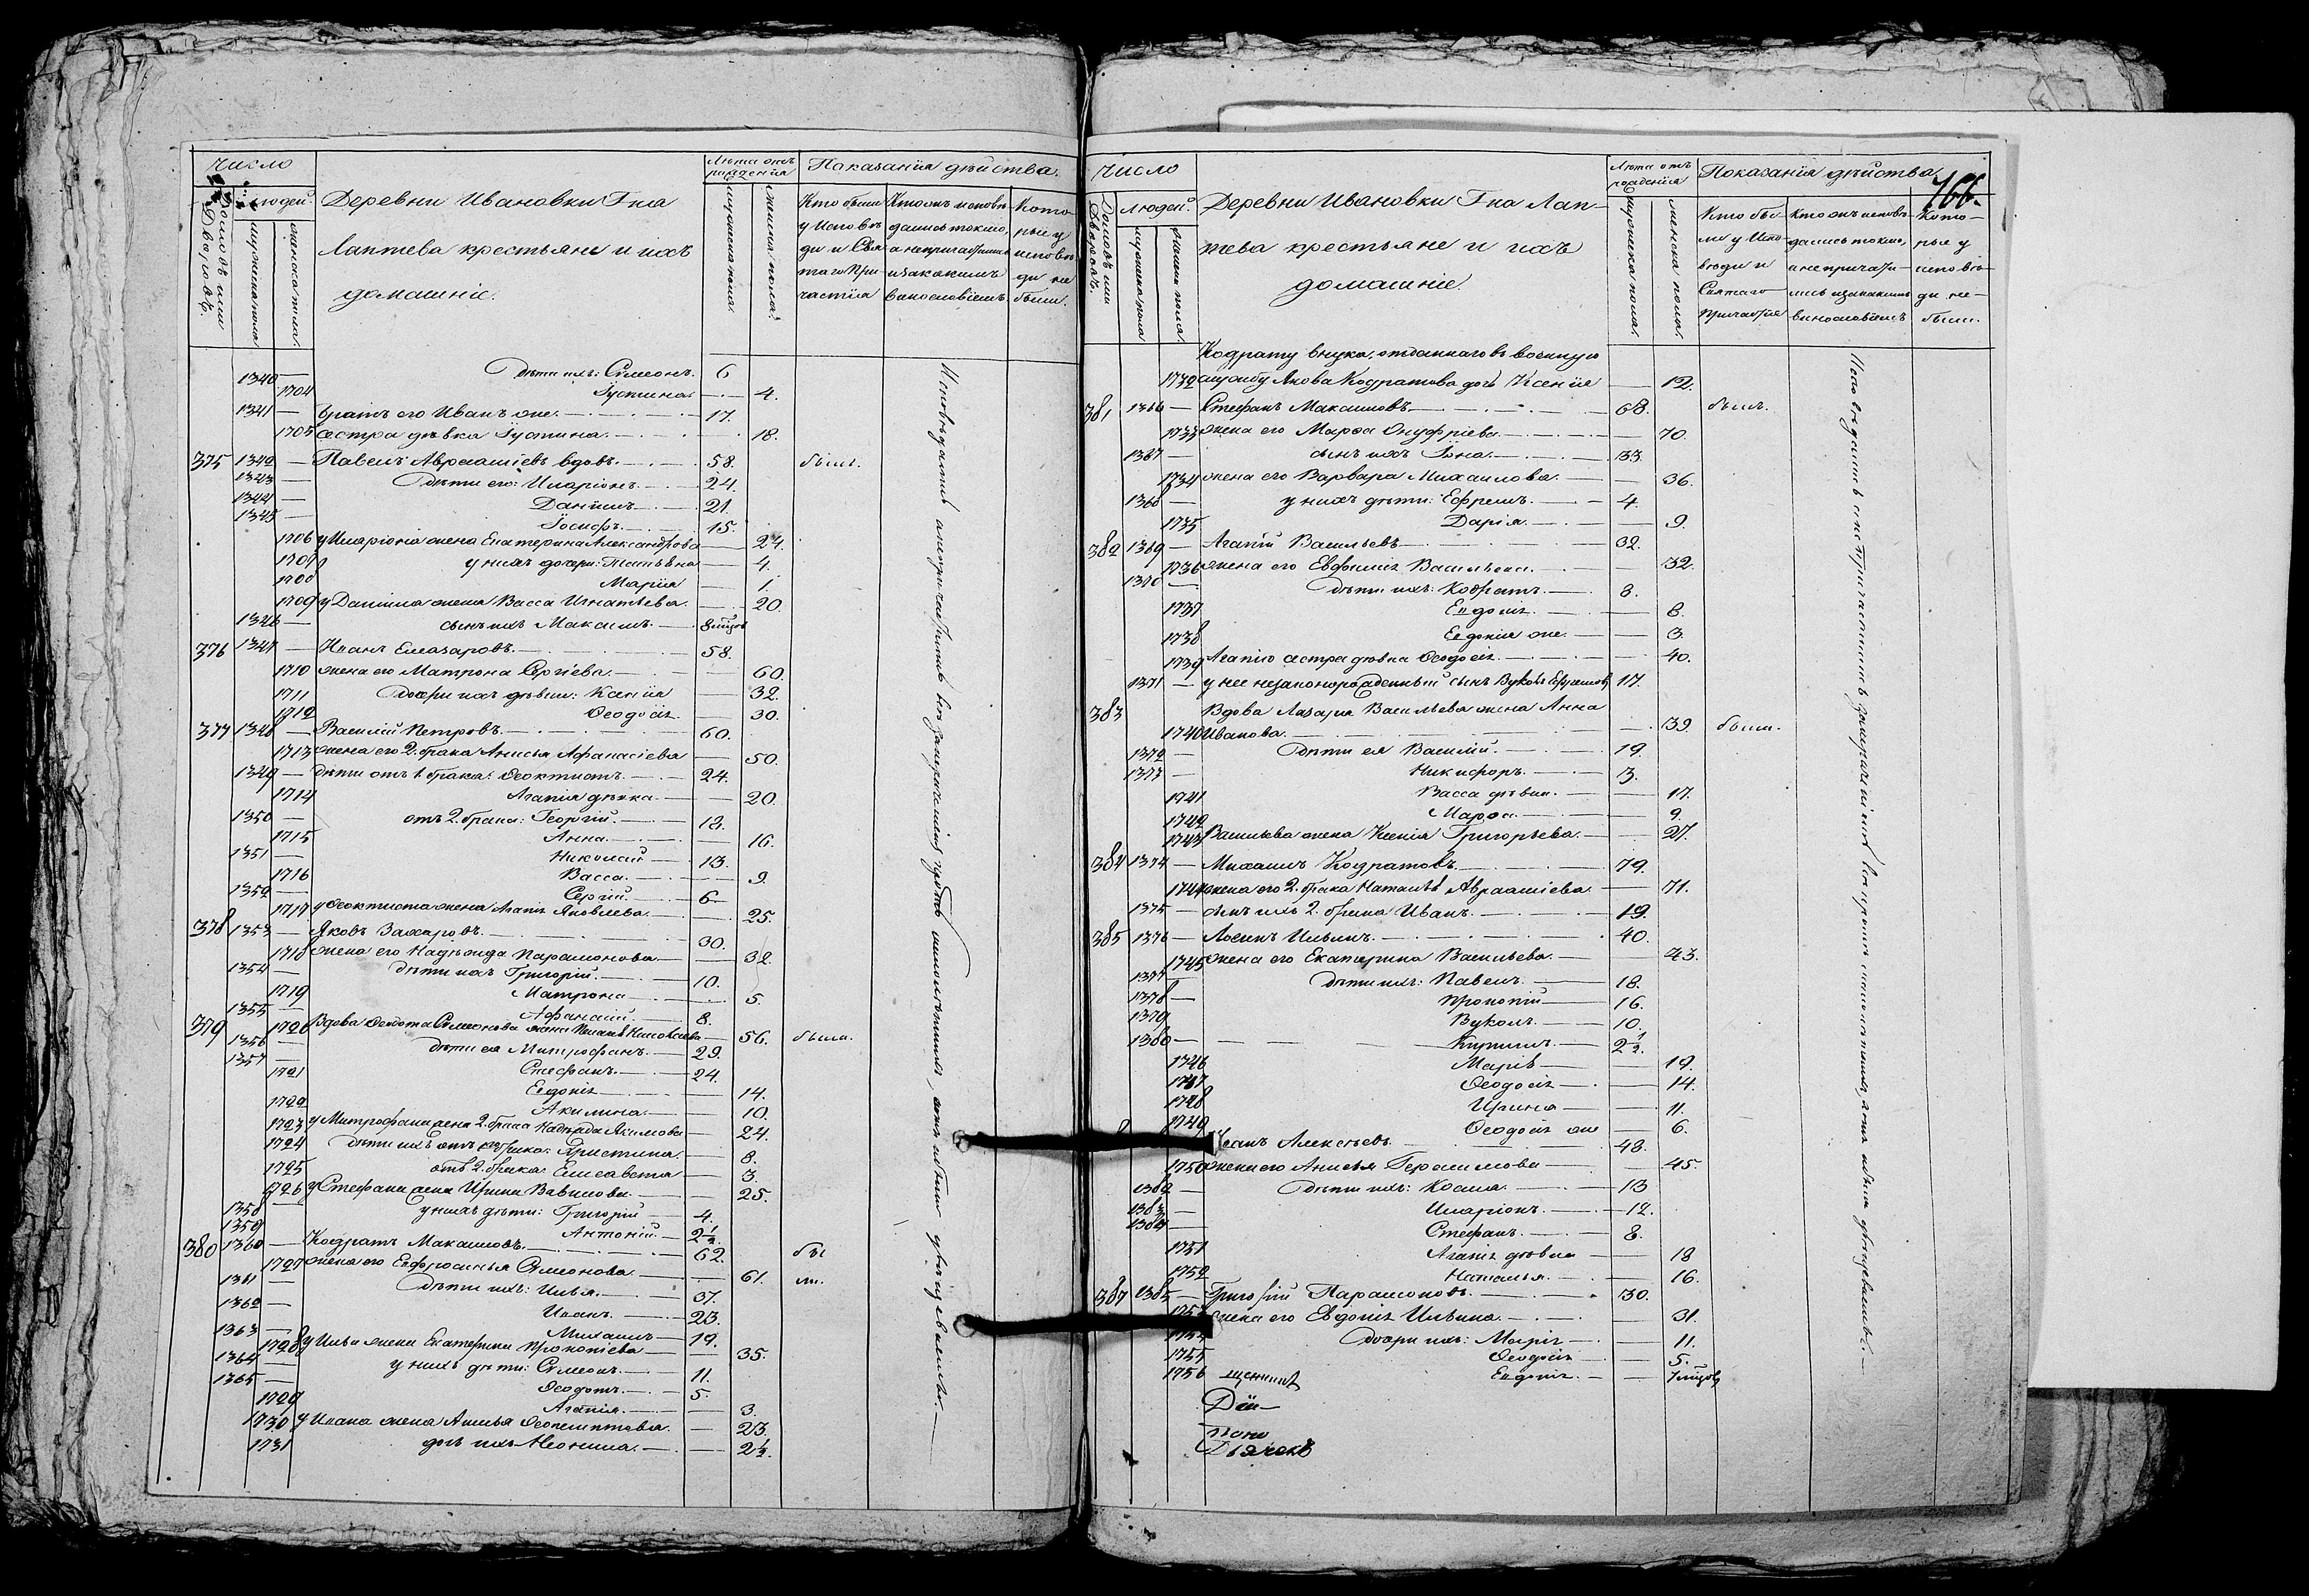 Число
Людей.
Домовъ или Дворовъ.
мужеска пола
женска пола.
Деревни Ивановки Гна
Лаптева крестьяне и ихъ
домашніе.
Лѣта отъ рожденія
мужеска пола.
женска пола.
Показанія дѣйства.
Кто были у Исповѣди и Святаго Причастія
Кто онъ исповѣдались токмо, а не причастились и за какимъ винословіемъ
Которые у исповѣди не были.
1340 — Дѣти ихъ: Сѵмеонъ. 6
1704 Іустина. — 4.
1341 — братъ его Иванъ же. — 17.
1705 сестра дѣвка Іустина. — 18.
375 1342 — Павелъ Аврааміевъ вдовъ. — 58. былъ.
1343 — Дѣти его: Иларіонъ. — 24.
1344 — Даніилъ. — 21.
1345 — Іосифъ. — 15.
1706 у Иларіона жена Екатерина Александрова — 24.
1707 у нихъ дочери: Татьяна — 4.
1708 Марія — 1.
1709 у Даніила жена Васса Игнатьева. — 20.
1346 — сынъ ихъ Максимъ. —
376 1347 — Иванъ Елеазаровъ. — 58.
1710 жена его Матрона Сергіева. — 60.
1711 Дочери ихъ дѣвки: Ксенія — 32.
1712 Ѳеодосія — 30.
377 1348 — Василій Петровъ. — 60.
1713 жена его 2. брака Анисья Афанасіева — 50.
1349 — дѣти отъ 1 брака: Ѳеоктистъ. — 24.
1714 Агапія дѣвка. — 20.
1350 — отъ 2. брака: Георгій. — 18.
1715 Анна. — 16.
1351 — Николай — 13.
1716 Васса. — 9.
1352 — Сергій. — 6.
1717 у Ѳеоктиста жена Агапія Яковлева. — 25.
378 1353 — Яковъ Захаровъ. — 30.
1718 жена его Надежда Парамонова. — 32.
1354 — дѣти ихъ Григорій. — 10.
1719 Матрона — 5.
1355 — Афанасій. — 8.
379 1720 Вдова Ѳедота Сѵмеонова жена — 56. была.
1356 — дѣти ея Митрофанъ. — 29.
1357 — Стефанъ. — 24.
1721 Евдокія — 14.
1722 Акилина. — 10.
1723 у Митрофана жена 2. брака Надежда Акимова — 24.
1724 дѣти ихъ отъ брака: Христина. — 8.
1725 отъ 2. брака: Елисавета — 3.
1726 у Стефана жена Ирина Вавилова. — 25.
1358 — у нихъ дѣти: Григорій — 4.
1359 Антоній. — 2½
380 1360 — Кодратъ Максимовъ. — 62. бы
1727 жена его Евфросинья Сѵмеонова. — 61. ли.
1361 — Дѣти ихъ: Илья. — 37.
1362 — Иванъ. — 23.
1363 — Михаилъ — 19.
1728 у Ильи жена Екатерина Прокопіева — 35.
1364 — у нихъ дѣти: Сѵмеонъ. — 11.
1365 — Ѳеодотъ. — 5.
1729 Агапія. — 3.
1730 у Ивана жена Анисья Ѳеоктистова. — 23.
1731 дочь ихъ — 2½.
766.
Число
Людей.
Домовъ или Дворовъ.
мужеска пола
женска пола
Деревни Ивановки Гна Лап-
тева крестьяне и ихъ
домашніе.
Лѣта отъ рожденія
мужеска пола.
женска пола.
Показанія дѣйства.
Кто были у Исповѣди и Святаго Причастія
Кто онъ исповѣдались токмо, а не причастились и за какимъ винословіемъ
Которые у исповѣди не были.
Кодрату внука, отданнаго въ военную
1732 службу Якова Кодратова дочь Ксенія — 12.
381 1366 — Стефанъ Максимовъ. — 68. былъ.
1733 жена его Марѳа Онуфріева. — 70.
1367 — сынъ ихъ Іона. — 33.
1734 жена его Варвара Михаилова. — 36.
1368 — у нихъ дѣти: Ефремъ. — 4.
1735 Дарія. — 9.
382 1369 — Агапій Васильевъ — 32.
1736 жена его Евфимія Васильева. — 32.
1370 — Дѣти ихъ: Кодратъ. — 8.
1737 Евдокія. — 8.
1738 Евдокія же. — 3.
1739 Агапію сестра дѣвка Ѳеодосія. — 40.
1371 — у нее незаконорожденный сынъ Вуколъ 17.
383 Вдова Лазаря Васильева жена Анна
1740 Иванова. — 39. была.
1372 — Дѣти ея Василій. — 19.
1373 — Никифоръ. — 3.
1741 Васса дѣвка. — 17.
1742 Марѳа. — 9.
1743 Васильева жена Ксенія Григорьева. — 27.
384 1374 — Михаилъ Кодратовъ — 79.
1744 жена его 2. брака Наталья Аврааміева. — 71.
1375 — сынъ ихъ 2. брака Иванъ. — 19.
385 1376 — Логинъ Ильинъ. — 40.
1745 жена его Екатерина Васильева. — 43.
1377 — Дѣти ихъ: Павелъ. — 18.
1378 — Прокопій — 16.
1379 Вуколъ. — 10.
1380 — Кирилъ. — 2½.
1746 Марія — 19.
1747 Ѳеодосія — 14.
1748 Ирина — 11.
1749 Ѳеодосія же — 6.
Иванъ Алексѣевъ — 48.
1750 жена его Анисья Герасимова — 45.
1382 — Дѣти ихъ: Косма. — 13
1383 — Иларіонъ. — 12.
1384 — Стефанъ. — 8.
1751 Агапія дѣвка — 18
1752 Наталья. — 16.
387 1385 — Григорій Парамоновъ. — 30.
жена его Евдокія Ильина. — 31.
Дочери ихъ: Марія — 11.
1755 Ѳеодосія — 5.
1756 щенникъ Евдокія. —
Діи—
поно
Дьячекъ